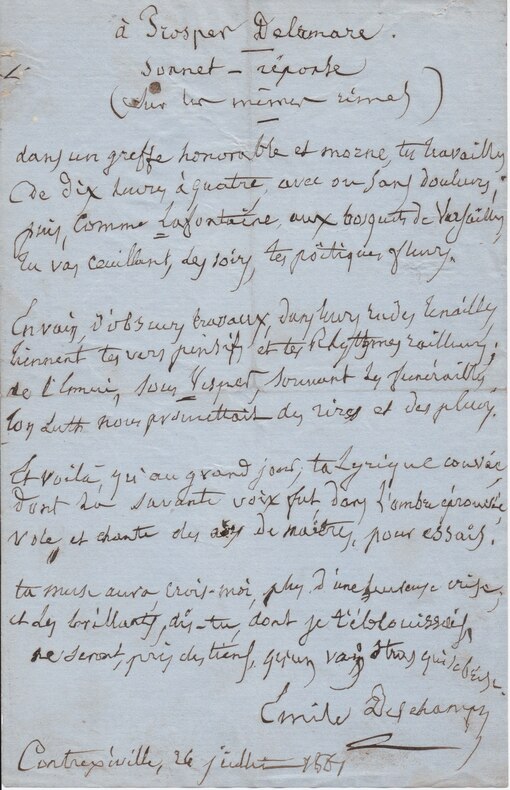 à Prosper Delamare.
Sonnet - réponse
(sur les mêmes rimes)
dans un greffe honorable et morne, tu travailles
de dix heures à quatre, avec ou sans douleurs,
puis, comme Lafontaine, aux bosquets de Versailles,
tu vas cueillant, des soirs, tes poëtiques fleurs.
En vain, d'obscurs travaux, dans leurs rudes tenailles
tiennent tes vers pensifs et tes Rhythmes railleurs;
de l'Ennui, sous Vesper, sonnant les funérailles
ton Luth nous promettait des rires et des pleurs.
Et voilà, qu'au grand jour, ta Lyrique couvée,
dont la savante voix fut, dans l'ombre éprouvée,
vole et chante des airs de maîtres, pour essais.
ta muse aura, crois-moi, plus d'une heureuse crise,
et les brillants, dis-tu, dont je t'éblouissais,
ne seront, près des tiens, qu'un vain Stras qui se brise.
Emile Deschamps
Contrexéville, 26 juillet 1861